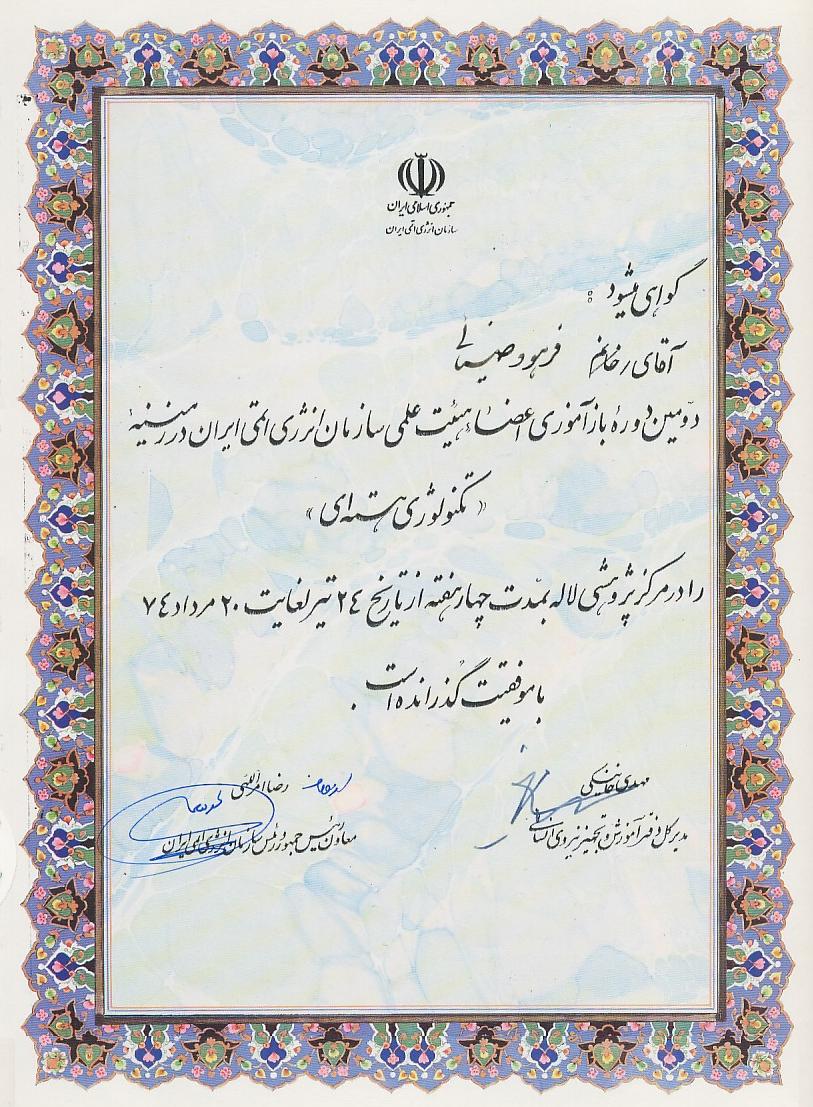 جمهوری اسلامی ایران
سازمان انرژی اتمی ایران
گواهی میشود :
آقای / خانم فرهود ضیائی
دوّمین دورهٔ بازآموزی اعضاء هیئت علمی سازمان انرژی اتمی ایران در زمینهٔ
« تکنولوژی هسته‌ای »
را در مرکز پژوهشی لاله بمدّت چهار هفته از تاریخ ۲۴ تیر لغایت ۲۰ مرداد ۷۴
با موفقیت گذرانده است .
مهدی خانیکی
مدیر کل دفتر آموزش و تجهیز نیروی انسانی
رضا امراللهی
معاون رئیس جمهور و رئیس سازمان انرژی اتمی ایران